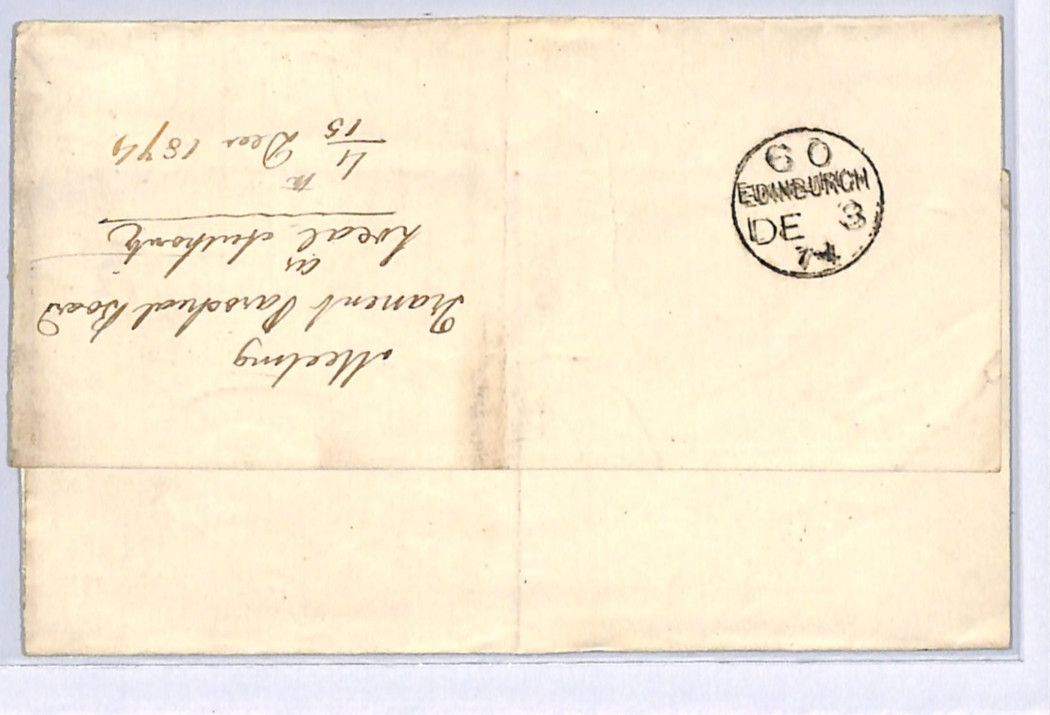 Meeting
Tranent Parochial Board
as
Local Authority
4
15 Decr 1874
6 O
EDINBURGH
DE 3
74